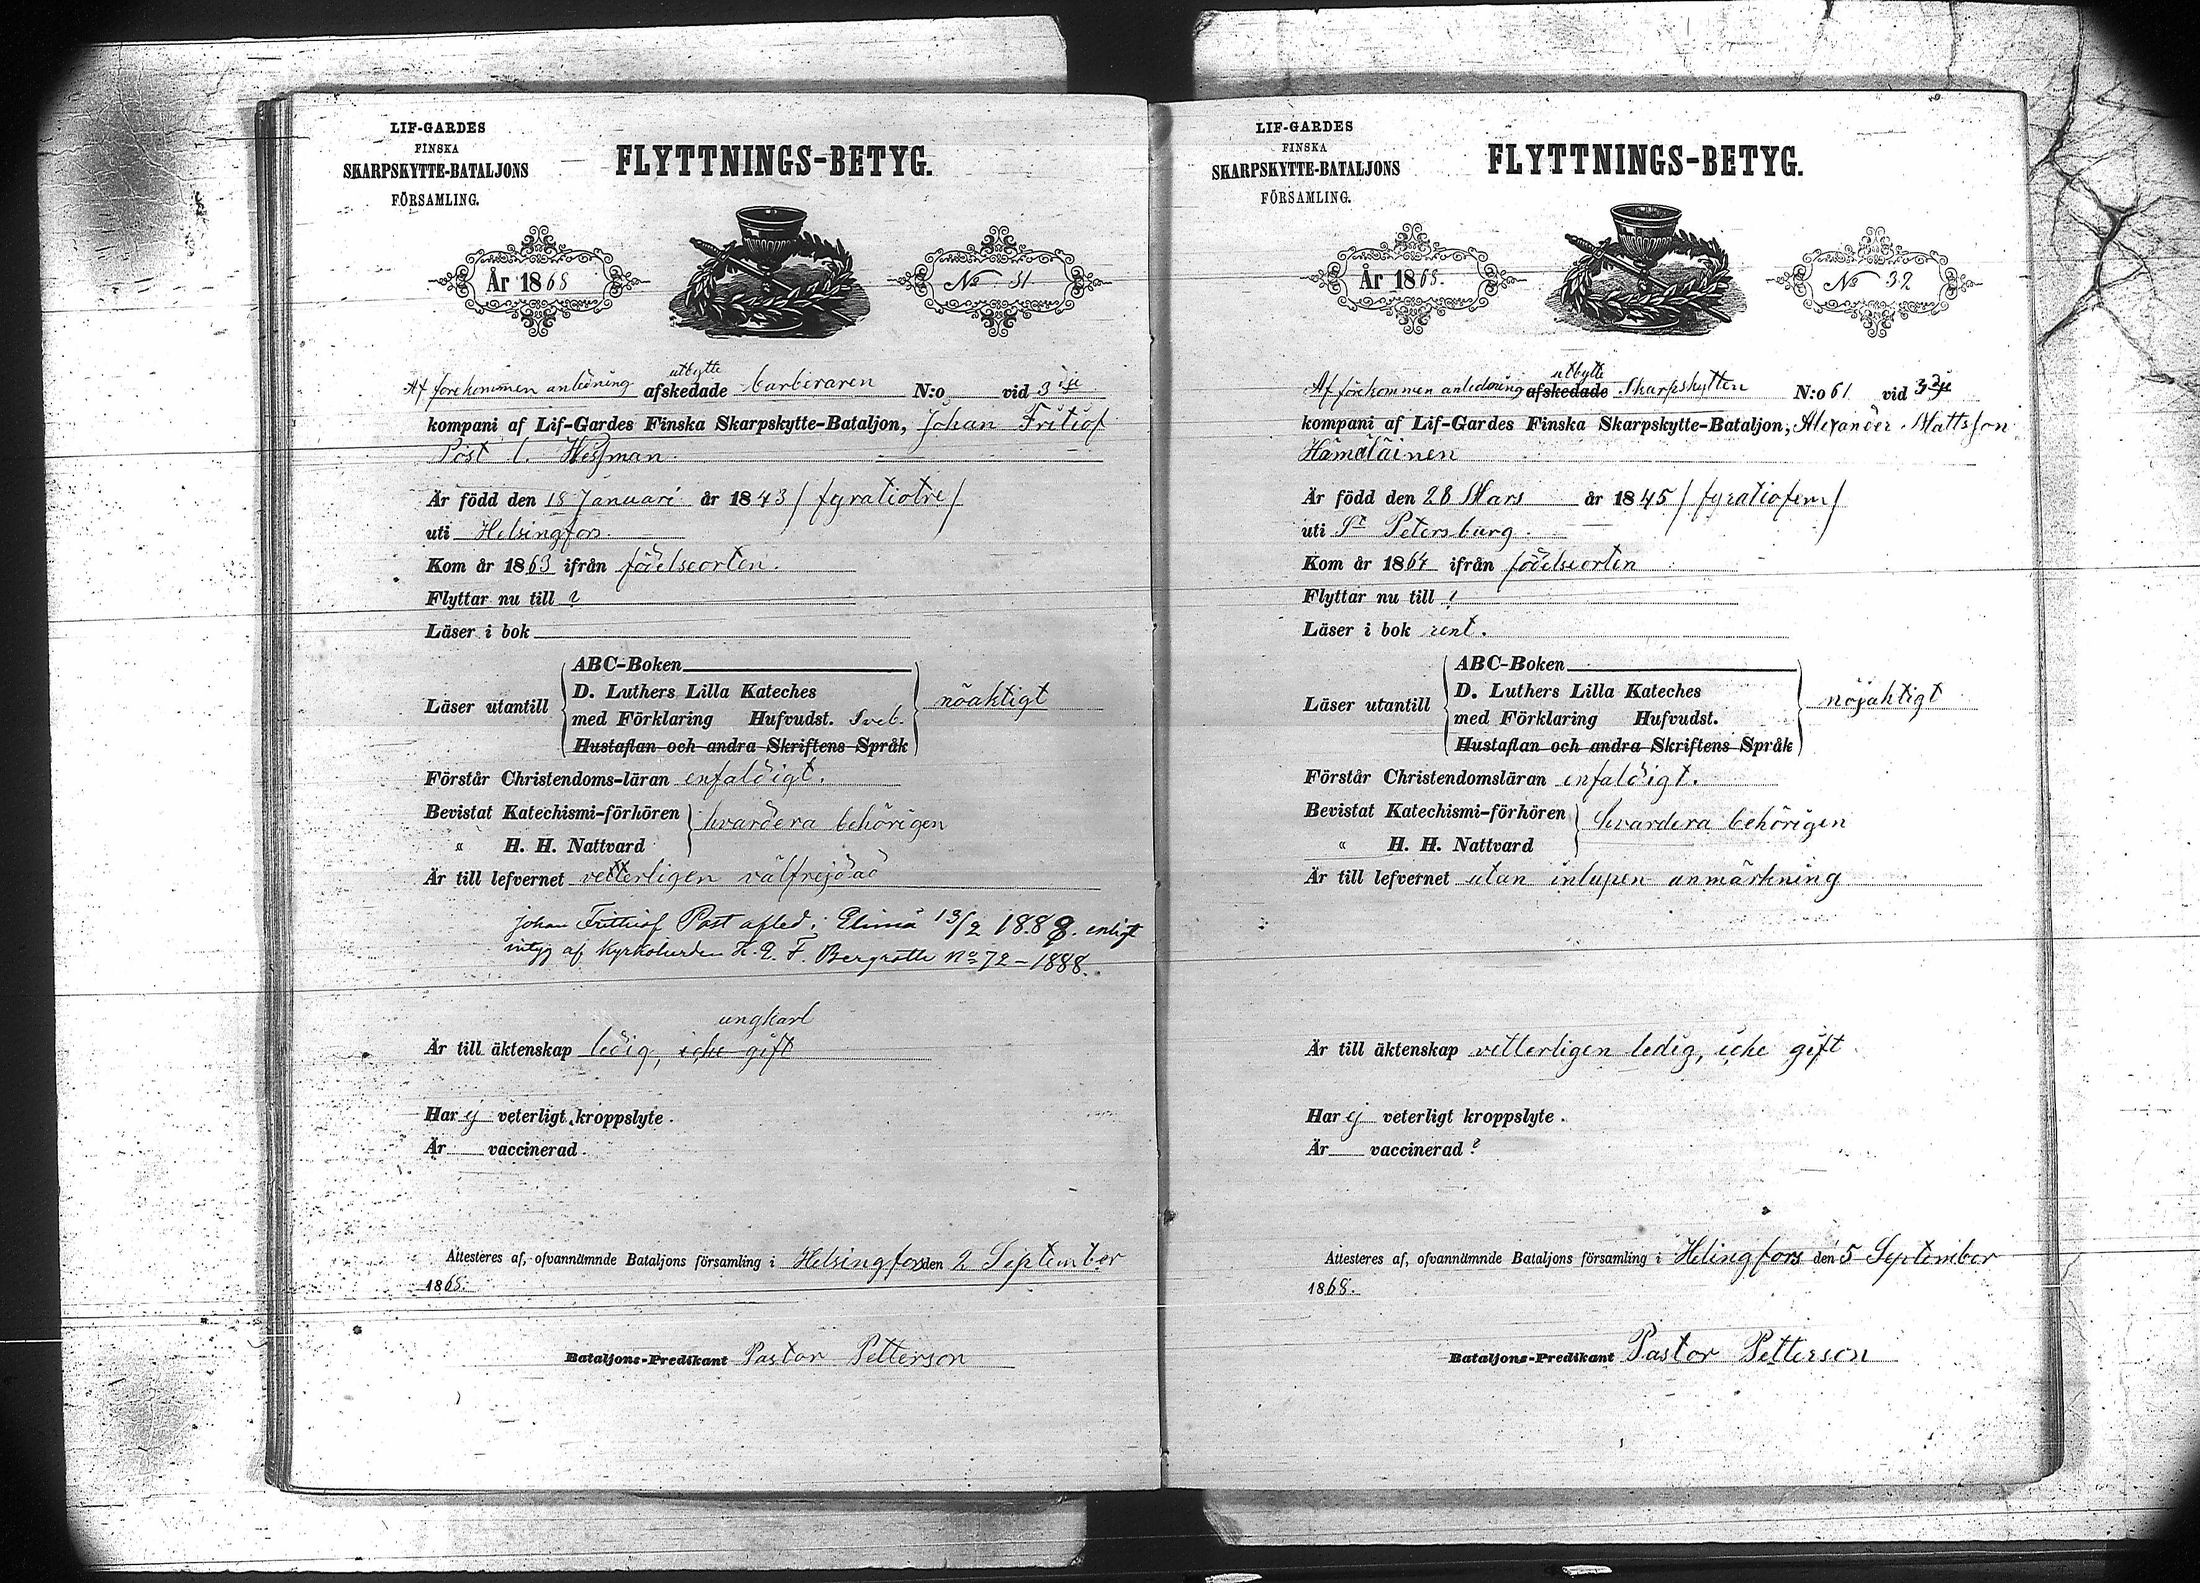 LIF-GARDES
FINSKA
SKARPSKYTTE-BATALJONS
FÖRSAMLING.
FLYTTNINGS-BETYG.
År 1868
No 31
utbytte
Af förekommen anledning afskedade barberaren N:o vid 3je
kompani af Lif-Gardes Finska Skarpskytte-Bataljon, Johan Fritiof
Post l.
Är född den 18 Januari år 1843 / fyratiotre /
uti Helsingfors.
Kom år 1863 ifrån födelseorten.
Flyttar nu till ?
Läser i bok
ABC-Boken
D. Luthers Lilla Kateches
Läser utantill med Förklaring Hufvudst. Sveb. nöaktigt
Hustaflan och andra Skriftens Språk
Förstår Christendoms-läran enfaldigt.
Bevistat Katechismi-förhören hvardera behörigen
« H. H. Nattvard
Är till lefvernet vetterligen välfrejdad
Johan Frithiof Post afled i Elimä 13/2 1888. enligt
intyg af Kyrkoherden K. E. F. Bergroth No 72 - 1888.
ungkarl
Är till äktenskap ledig, icke gift
Har ej veterligt kroppslyte.
Är vaccinerad.
Attesteres af, ofvannämnde Bataljons församling i Helsingfors den 2 September
1868.
Bataljons-Predikant Pastor Petterson
LIF-GARDES
FINSKA
SKARPSKYTTE-BATALJONS
FÖRSAMLING.
FLYTTNINGS-BETYG.
År 1868.
No 32
utbytte
Af förekommen anledning afskedade Skarpskytten N:o 61 vid 3je
kompani af Lif-Gardes Finska Skarpskytte-Bataljon, Alexander Mattsson
Hämäläinen
Är född den 28 Mars år 1845 / fyratiofem /
uti St Petersburg.
Kom år 1864 ifrån födelseorten
Flyttar nu till ?
Läser i bok rent.
ABC-Boken
D. Luthers Lilla Kateches
Läser utantill med Förklaring Hufvudst. nöjaktigt
Hustaflan och andra Skriftens Språk
Förstår Christendomsläran enfaldigt.
Bevistat Katechismi-förhören hvardera behörigen
« H. H. Nattvard
Är till lefvernet utan inlupen anmärkning
Är till äktenskap vetterligen ledig, icke gift
Har ej veterligt kroppslyte.
Är vaccinerad ?
Attesteres af, ofvannämnde Bataljons församling i Helingfors den 5 September
1868.
Bataljons-Predikant Pastor Petterson